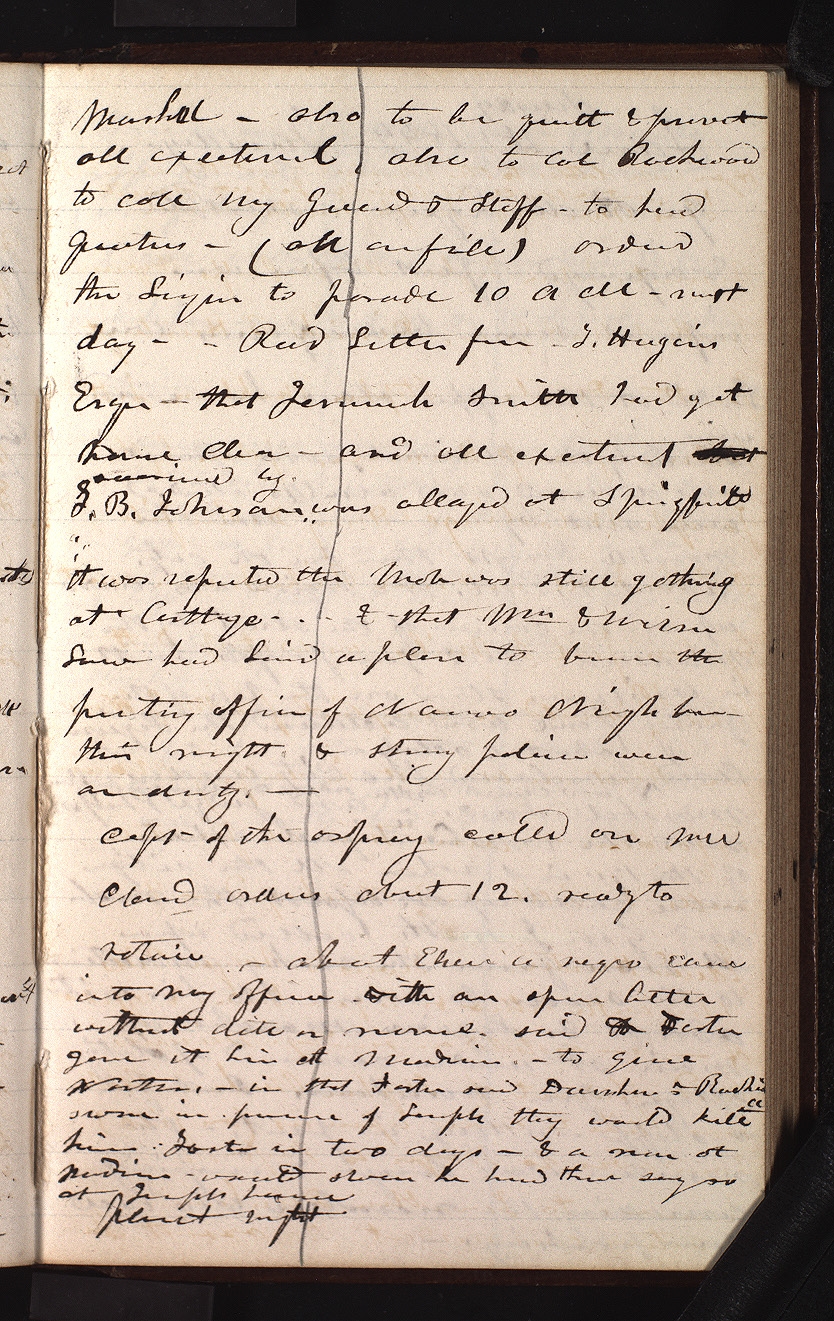 Marshal - also to be quiet & prevent
all excitement, also to Col Rockwood
to call my Guard & Staff - to head
quarters - (all on file) orderd
the Ligin to parade 10 A M - next
day - - Recd Letter from - J. Hugins
Esqr - that Jeremiah Smith had got
home clear - and all excitement
occasioned by
J. B. Johnson was allayed at Springfield
it was reported the Mob was still gathing
at Carthage - . - & that Wm & Wilson
Law had laid a plan to burn the
printing office of Nauvoo Neigh bor -
this night. & strong police were
on duty. -
capt of the osprey called on me
Closed orders about 12. ready to
retire - about Eleven a negro came
into my office with an open letter
without date or name. said Foster
gave it him at Madison. - to give
- in that Foster said Dunham & Rockwood
swore in presence of Joseph they would kill
him Foster in two days - & a man at
Madison would swear he heard them say so
at Josephs house
plesant night